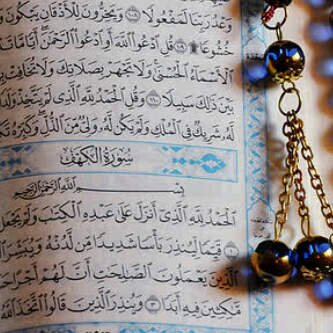 وَعْدُ رَبِّنَا لَمَفْعُولًا ١٠٨ وَيَخِرُّونَ لِلْأَذْقَانِ يَبْكُونَ
خُشُوعًا ۩ ١٠٩ قُلِ ٱدْعُوا۟ ٱللَّهَ أَوِ ٱدْعُوا۟ ٱلرَّحْمَٰنَ أَيًّا مَّا
ٱلْأَسْمَآءُ ٱلْحُسْنَىٰ وَلَا تَجْهَرْ بِصَلَاتِكَ وَلَا تُخَافِتْ
بَيْنَ ذَٰلِكَ سَبِيلًا ١١٠ وَقُلِ ٱلْحَمْدُ لِلَّهِ ٱلَّذِى لَمْ يَتَّخِذْ وَلَدًا
لَّهُۥ شَرِيكٌ فِى ٱلْمُلْكِ وَلَمْ يَكُن لَّهُۥ وَلِىٌّ مِّنَ ٱلذُّلِّ وَكَبِّرْهُ
سُورَةُ الكَهْفِ
بِسْمِ ٱللَّهِ ٱلرَّحْمَٰنِ ٱلرَّحِيمِ
ٱلْحَمْدُ لِلَّهِ ٱلَّذِىٓ أَنزَلَ عَلَىٰ عَبْدِهِ ٱلْكِتَٰبَ وَلَمْ يَجْعَل
١ قَيِّمًا لِّيُنذِرَ بَأْسًا شَدِيدًا مِّن لَّدُنْهُ وَيُبَشِّرَ
ٱلَّذِينَ يَعْمَلُونَ ٱلصَّٰلِحَٰتِ أَنَّ لَهُمْ أَجْرًا
مَّٰكِثِينَ فِيهِ أَبَدًا ٣ وَيُنذِرَ ٱلَّذِينَ قَالُوا۟ ٱتَّخَذَ ٱللَّهُ